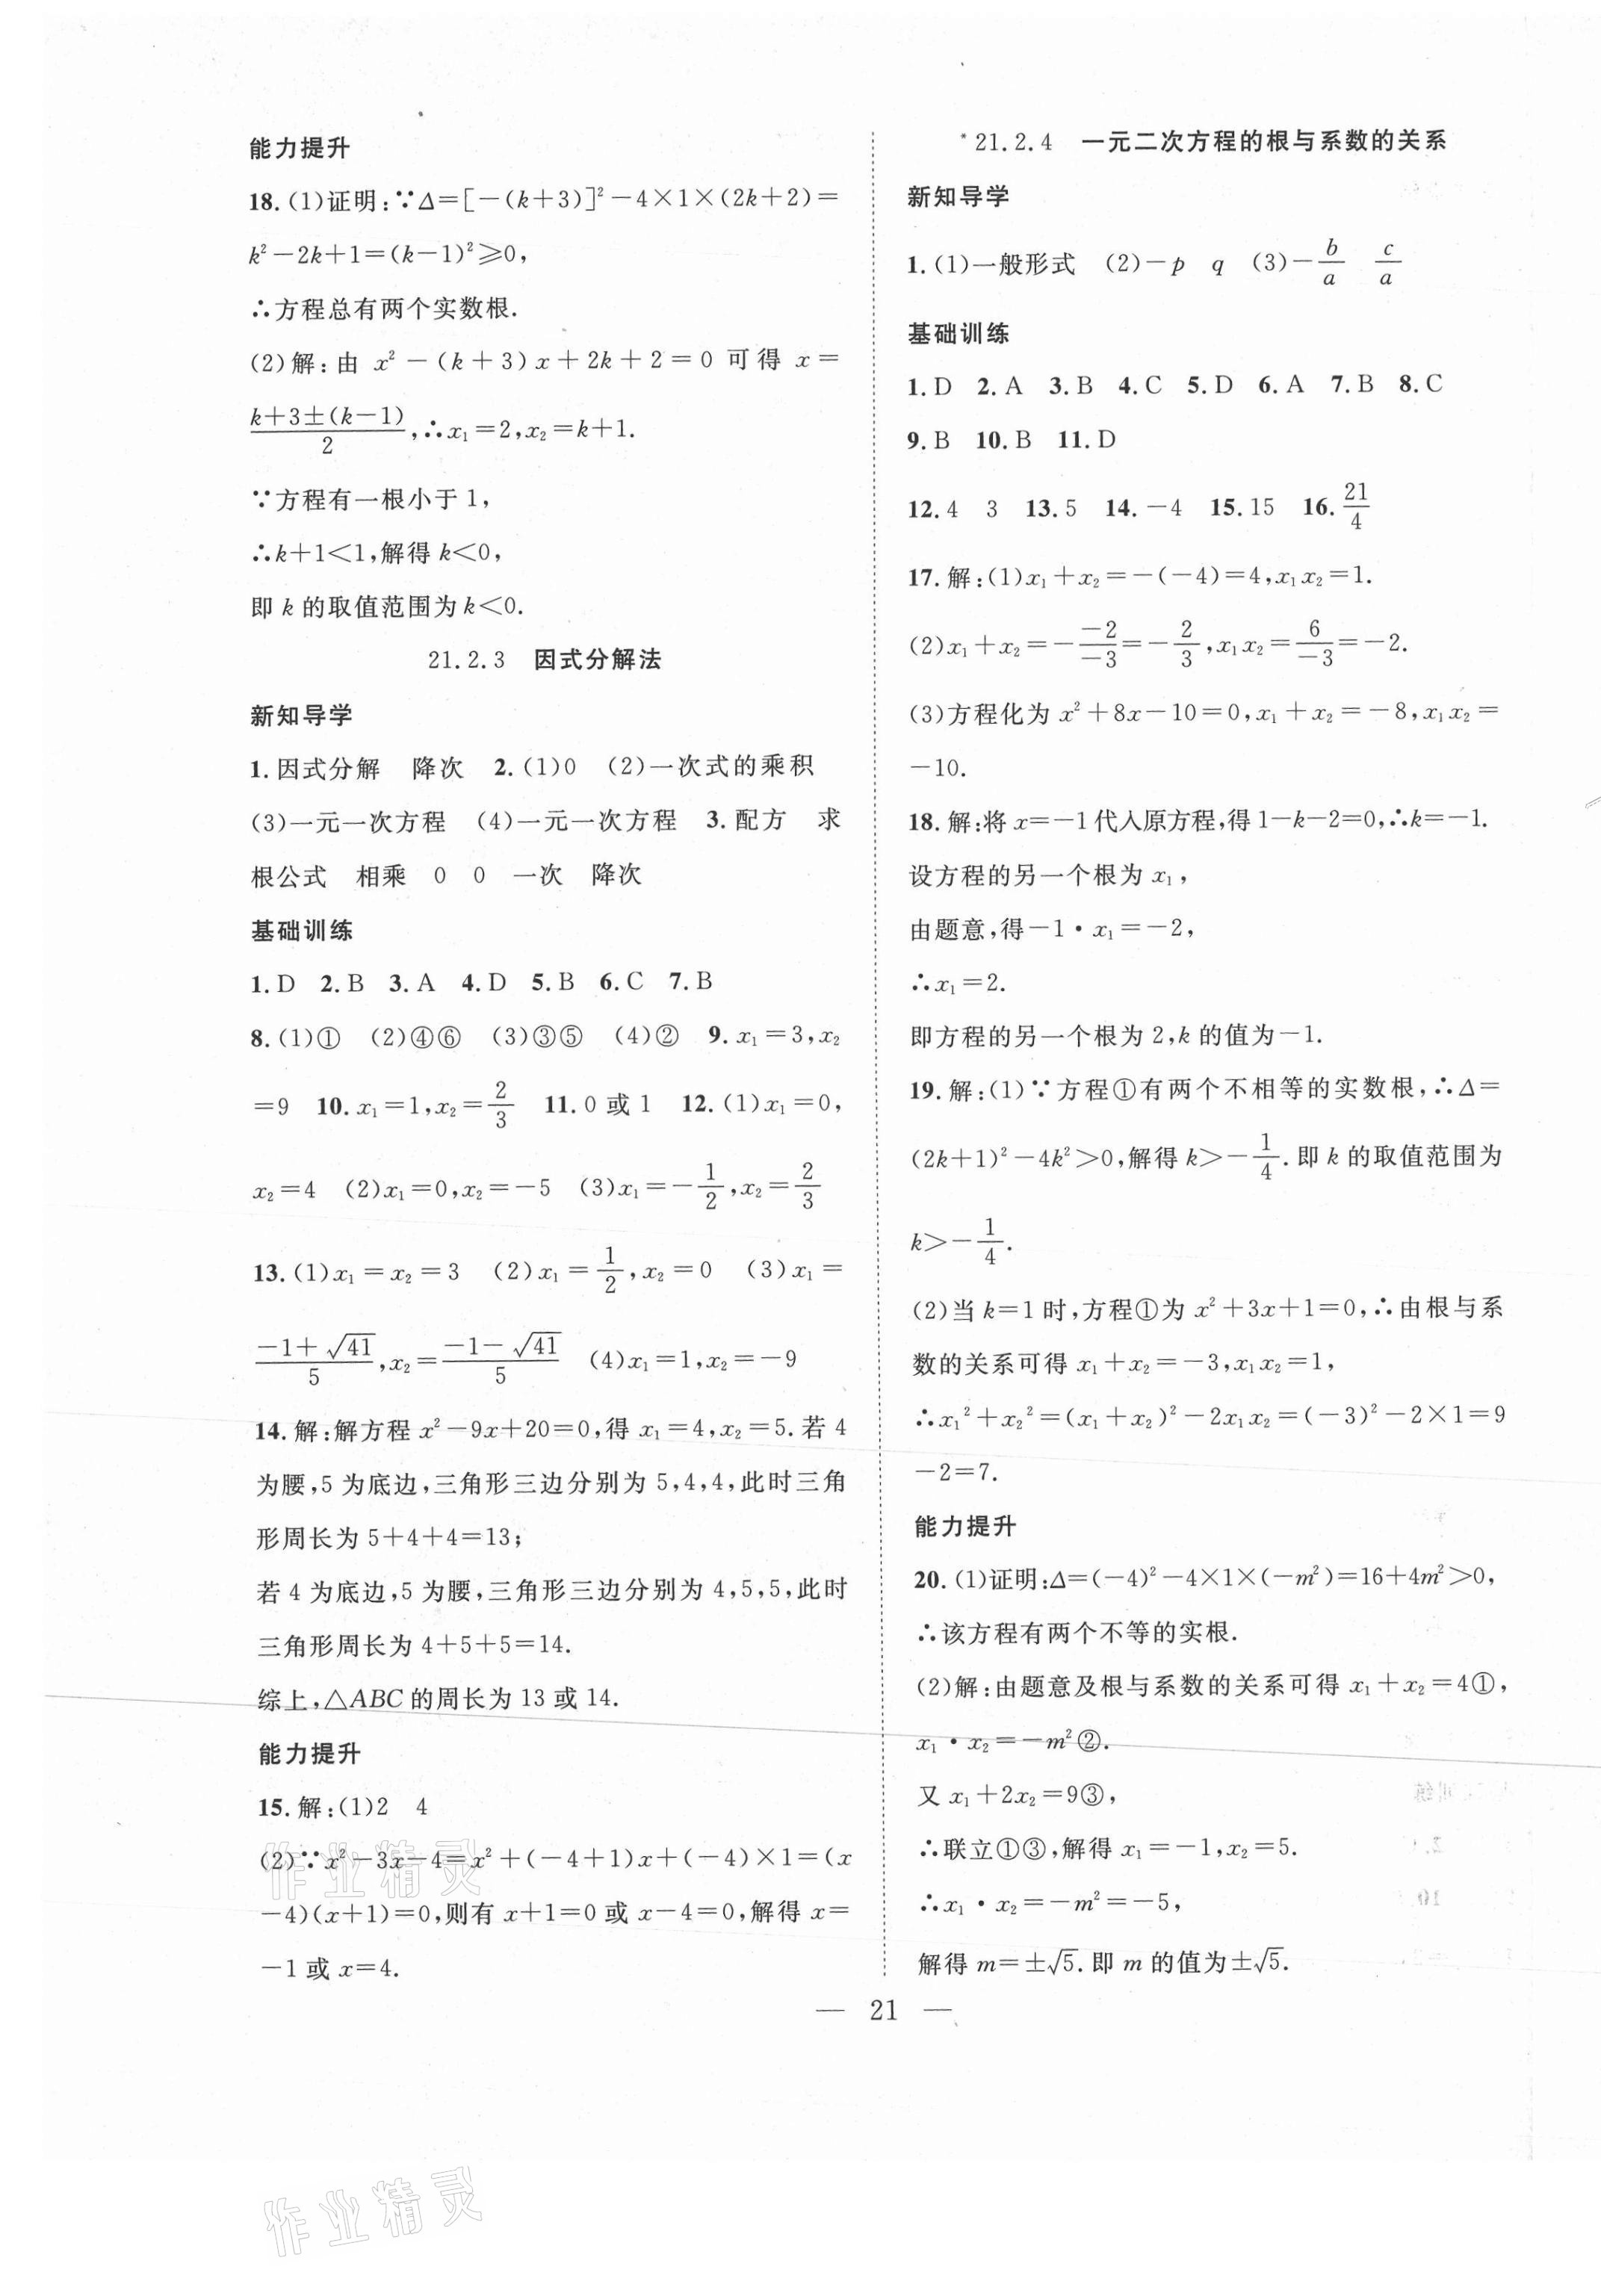 能力提升
18.(1)证明:∵Δ=[-(k+3)]²-4×1×(2k+2)=
k²-2k+1=(k-1)²⩾0,
∴方程总有两个实数根.
(2)解:由 x²-(k+3)x+2k+2=0 可得 x=
\frac{k+3±(k-1)}{2},∴x₁=2,x₂=k+1.
∵方程有一根小于1,
∴k+1<1,解得 k<0,
即 k 的取值范围为 k<0.
21.2.3 因式分解法
新知导学
1.因式分解 降次 2.(1)0 (2)一次式的乘积
(3)一元一次方程 (4)一元一次方程 3.配方 求
根公式 相乘 0 0 一次 降次
基础训练
1.D 2.B 3.A 4.D 5.B 6.C 7.B
8.(1)① (2)④⑥ (3)③⑤ (4)② 9.x₁=3,x₂
=9 10.x₁=1,x₂=\frac{2}{3} 11.0 或 1 12.(1)x₁=0,
x₂=4 (2)x₁=0,x₂=-5 (3)x₁=-\frac{1}{2},x₂=\frac{2}{3}
13.(1)x₁=x₂=3 (2)x₁=\frac{1}{2},x₂=0 (3)x₁=
\frac{-1+√41}{5},x₂=\frac{-1-√41}{5} (4)x₁=1,x₂=-9
14.解:解方程 x²-9x+20=0,得 x₁=4,x₂=5.若 4
为腰,5 为底边,三角形三边分别为 5,4,4,此时三角
形周长为 5+4+4=13;
若 4 为底边,5 为腰,三角形三边分别为 4,5,5,此时
三角形周长为 4+5+5=14.
综上,△ABC 的周长为 13 或 14.
能力提升
15.解:(1)2 4
(2)∵x²-3x-4=x²+(-4+1)x+(-4)×1=(x
-4)(x+1)=0,则有 x+1=0 或 x-4=0,解得 x=
-1 或 x=4.
*21.2.4 一元二次方程的根与系数的关系
新知导学
1.(1)一般形式 (2)-p q (3)-\frac{b}{a} \frac{c}{a}
基础训练
1.D 2.A 3.B 4.C 5.D 6.A 7.B 8.C
9.B 10.B 11.D
12.4 3 13.5 14.-4 15.15 16.\frac{21}{4}
17.解:(1)x₁+x₂=-(-4)=4,x₁x₂=1.
(2)x₁+x₂=-\frac{-2}{-3}=-\frac{2}{3},x₁x₂=\frac{6}{-3}=-2.
(3)方程化为 x²+8x-10=0,x₁+x₂=-8,x₁x₂=
-10.
18.解:将 x=-1 代入原方程,得 1-k-2=0,∴k=-1.
设方程的另一个根为 x₁,
由题意,得-1·x₁=-2,
∴x₁=2.
即方程的另一个根为 2,k 的值为-1.
19.解:(1)∵方程①有两个不相等的实数根,∴Δ=
(2k+1)²-4k²>0,解得 k>-\frac{1}{4}.即 k 的取值范围为
k>-\frac{1}{4}.
(2)当 k=1 时,方程①为 x²+3x+1=0,∴由根与系
数的关系可得 x₁+x₂=-3,x₁x₂=1,
∴x₁²+x₂²=(x₁+x₂)²-2x₁x₂=(-3)²-2×1=9
-2=7.
能力提升
20.(1)证明:Δ=(-4)²-4×1×(-m²)=16+4m²>0,
∴该方程有两个不等的实根.
(2)解:由题意及根与系数的关系可得 x₁+x₂=4①,
x₁·x₂=-m²②.
又 x₁+2x₂=9③,
∴联立①③,解得 x₁=-1,x₂=5.
∴x₁·x₂=-m²=-5,
解得 m=±√5.即 m 的值为±√5.
— 21 —
作业精灵
作业精灵